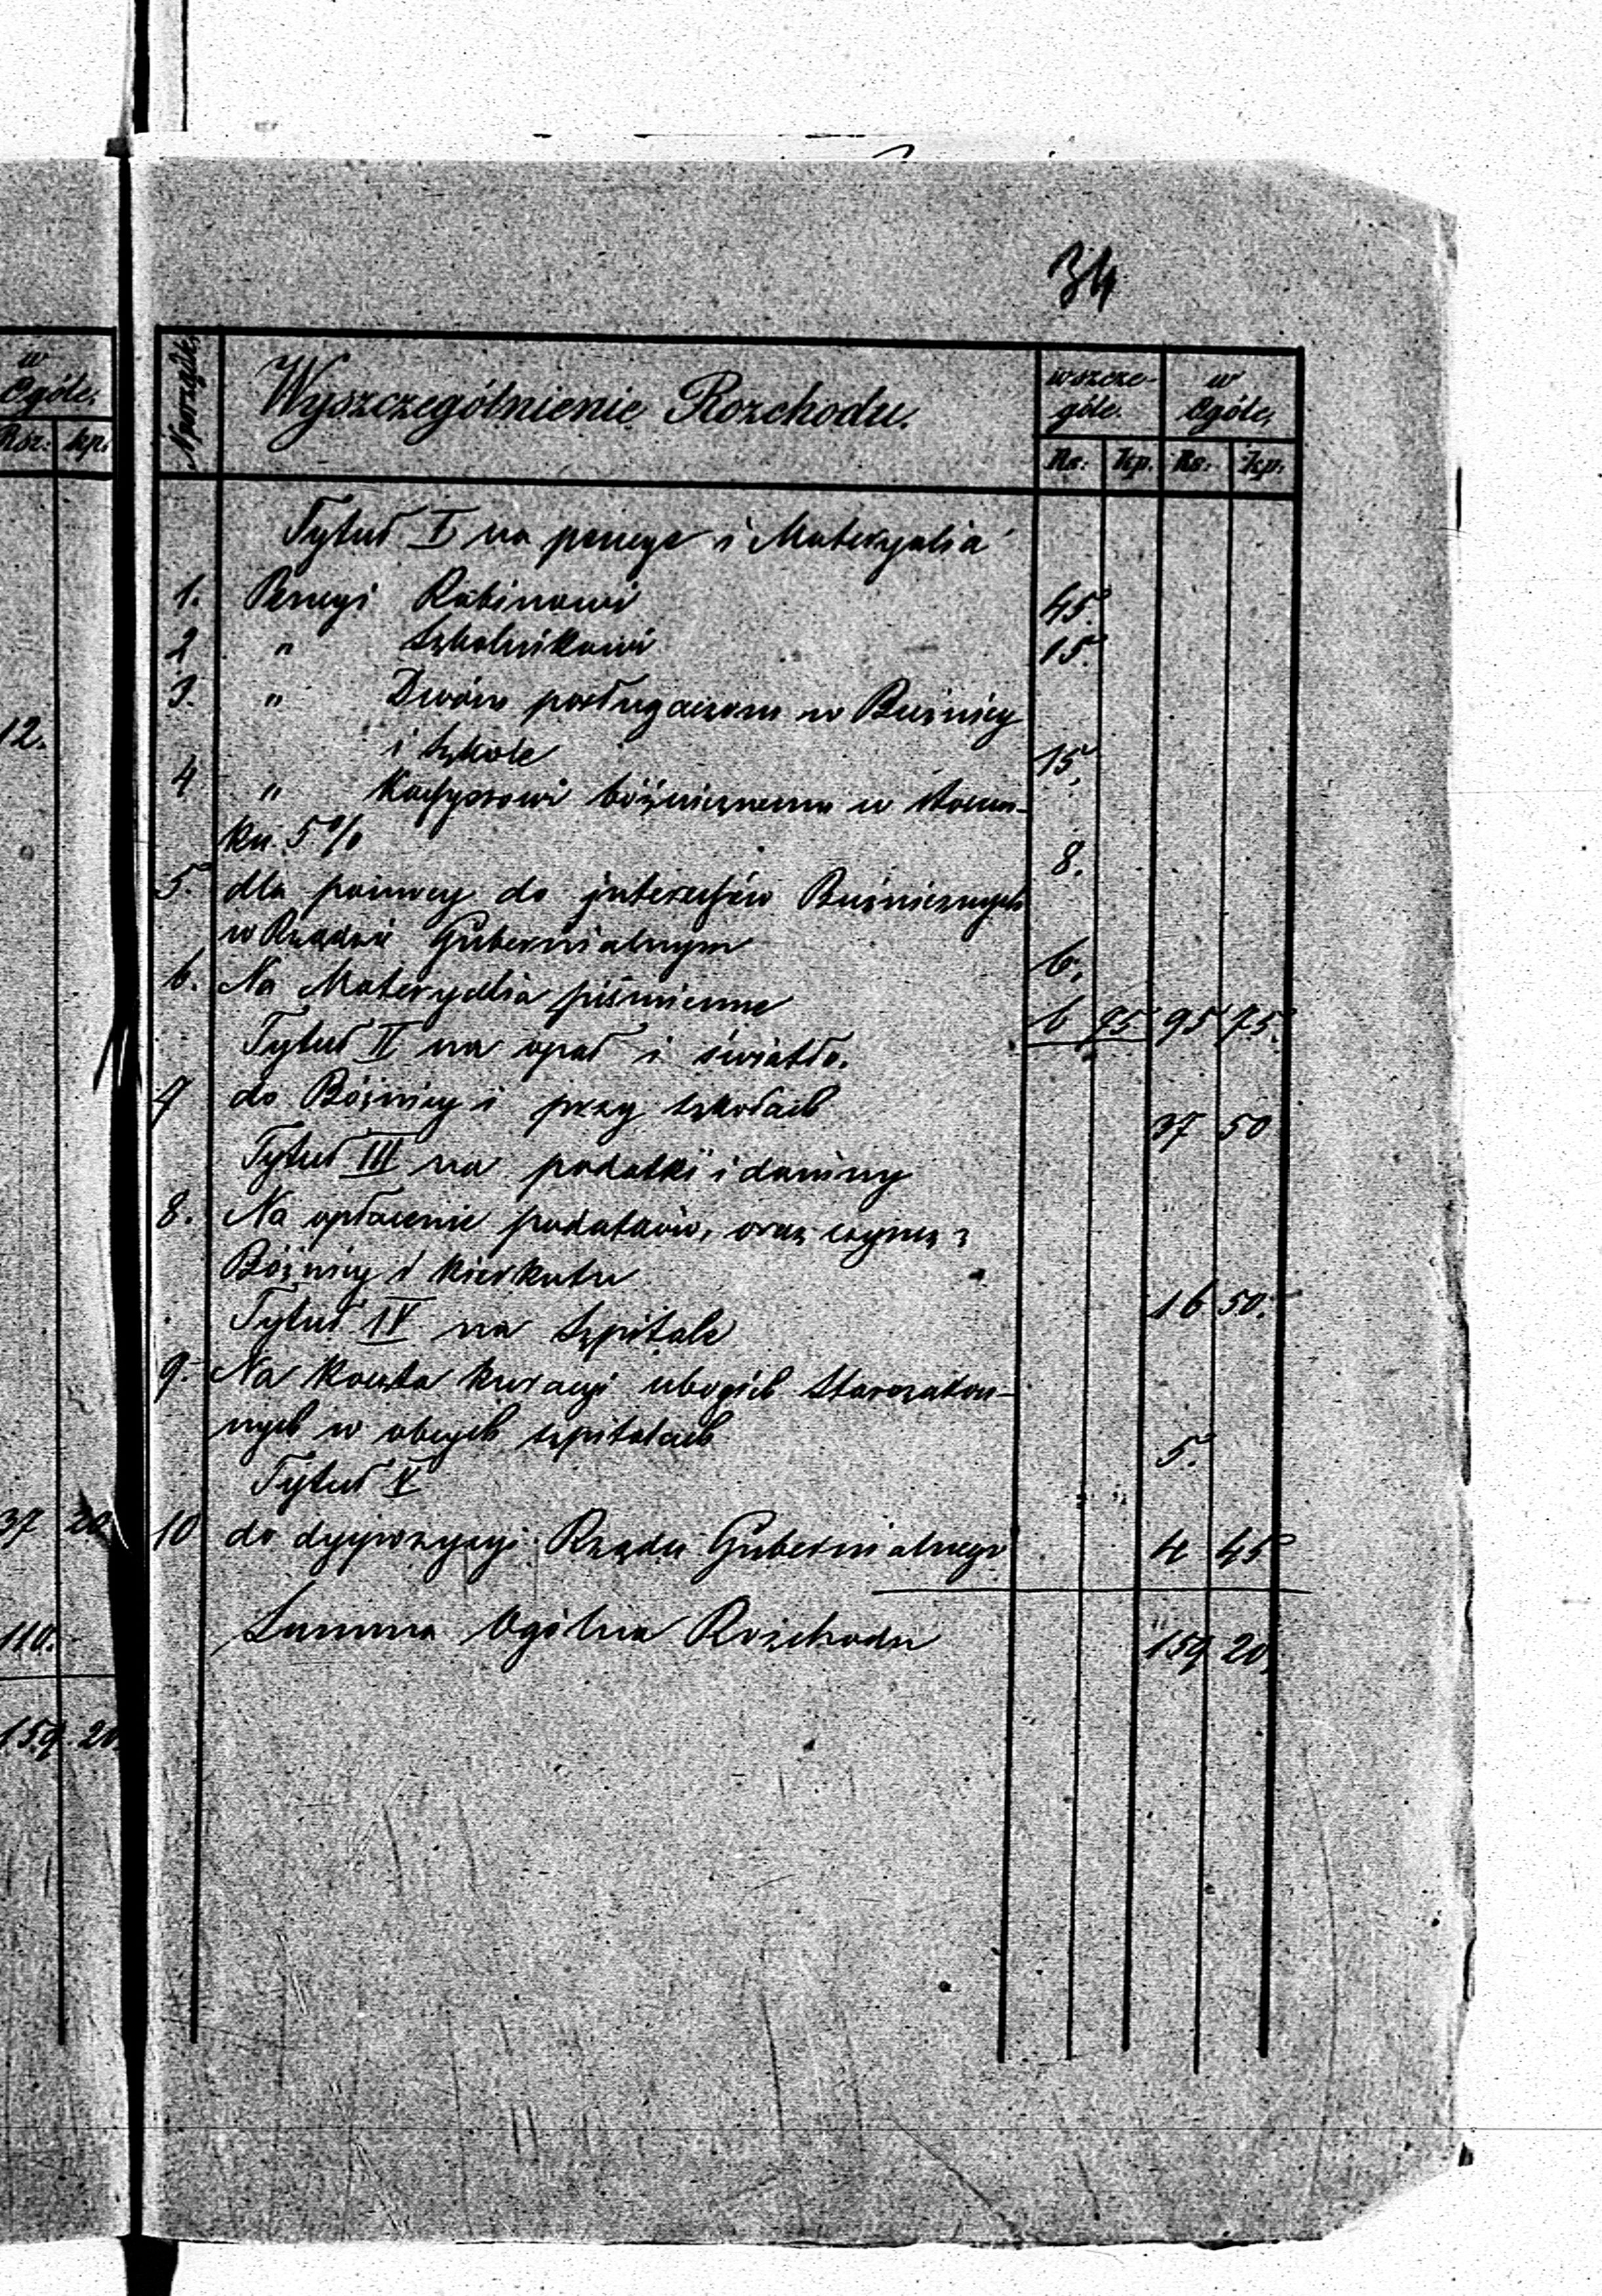 34
w
Ogóle.
Rsr. kp.
12.
37 20
110.
159 20.
N porządk.
Wyszczególnienie Rozchodu.
wszcze-
góle.
w
Ogóle,
Rs. Kp. Rs. Kp.
Tytuł I na pensye i Materyalia
1. Pensyi Rabinowi 45.
2 " Szkolnikowi 15.
3. " Dwóm posługaczom w Bużnicy
i szkole 15,
4 " Kassyerowi bóżnicznemu w stosun-
ku 5% 8.
5. dla pomocy do interessów Bużnicznych
w Rządzie Gubernialnym 6,
6. Na Materyalia piśmienne 6 75 95 75.
Tytuł II na opał i światło.
7 do Bóżnicy i przy szkołach 37 50
Tytuł III na podatki i daniny
8. Na opłacenie podatków, oraz czynsz z
Bóżnicy i kierkutu 16 50.
Tytuł IV na szpitale
9. Na koszta kuracyi ubogich Starozakon-
nych w obcych szpitalach 5.
Tytuł V
10 do dyspozycyi Rządu Gubernialnego 4 45
Summa Ogólna Rozchodu 159 20,